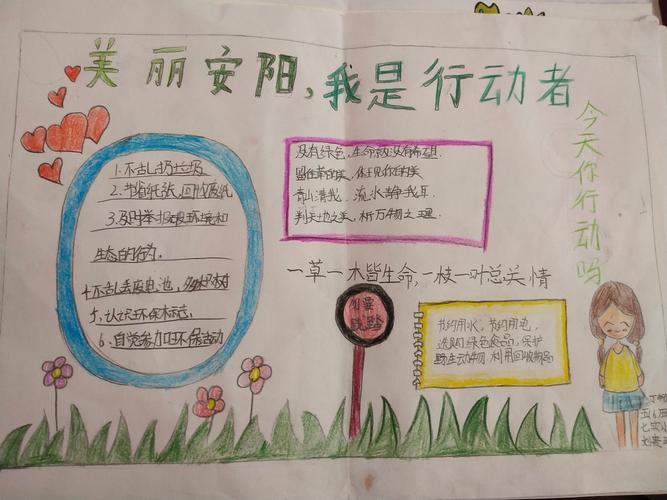 美丽安阳，我是行动者
今天你行动吗
1.不乱扔垃圾
2.节省纸张，回收废纸
3.及时举报破坏环境和
生态的行为。
4.不乱丢废电池，多种树
5、认识环保标志。
6、自觉参加环保活动
没有绿色，生命就没有希望
留住草的美
青山清我，流水静我耳.
判天地之美，析万物之理.
一草一木皆生命，一枝一叶总关情
践踏
节约用水，节约用电，
选购绿色食品，保护
野生动物 利用回收物品